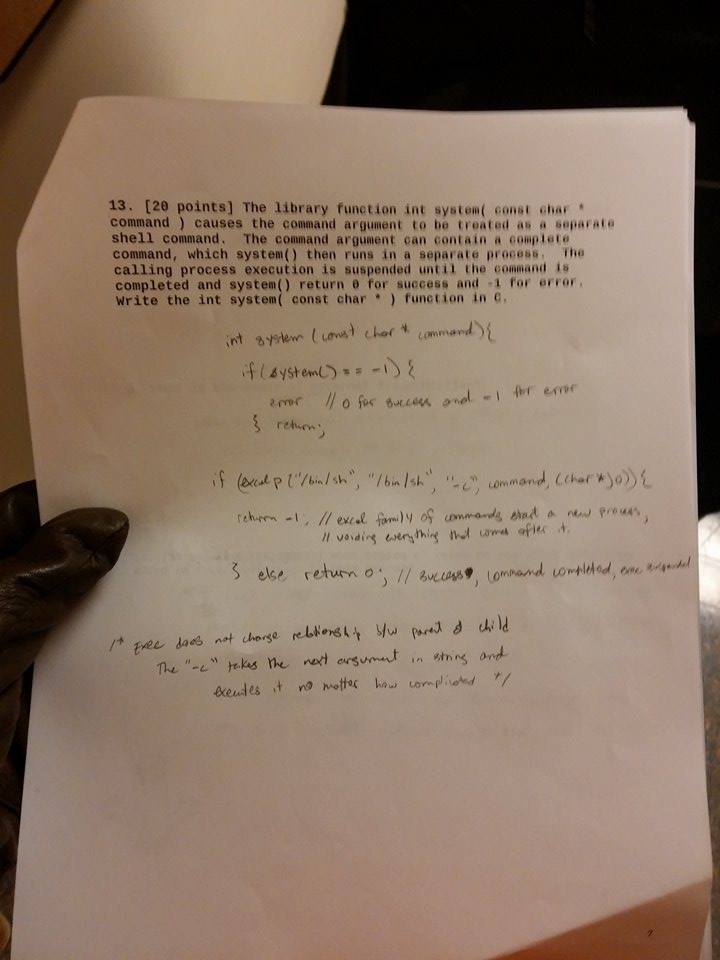 13. [20 points] The library function int system( const char *
command ) causes the command argument to be treated as a separate
shell command. The command argument can contain a complete
command, which system() then runs in a separate process. The
calling process execution is suspended until the command is
completed and system() return 0 for success and -1 for error.
Write the int system( const char * ) function in C.
int system (const char * command){
if(system() == -1) {
error // 0 for success and -1 for error
} return;
if (execlp("/bin/sh", "/bin/sh", "-c", command, (char*)0)){
return -1; // excel family of commands start a new process,
// voiding everything that comes after it.
} else return 0; // success, command completed, exec suspended
/* Exec does not change relationship b/w parent & child
The "-c" takes the next argument in string and
executes it no matter how complicated */
7